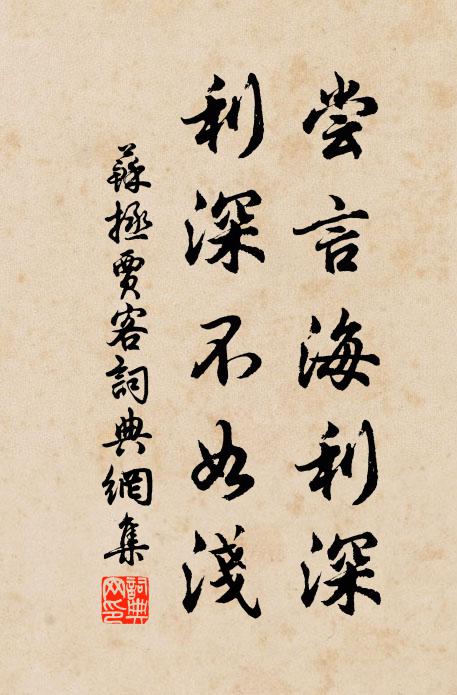 尝言海利深
利深不如淺
蘇拯賈客詞典網集
詞典網印